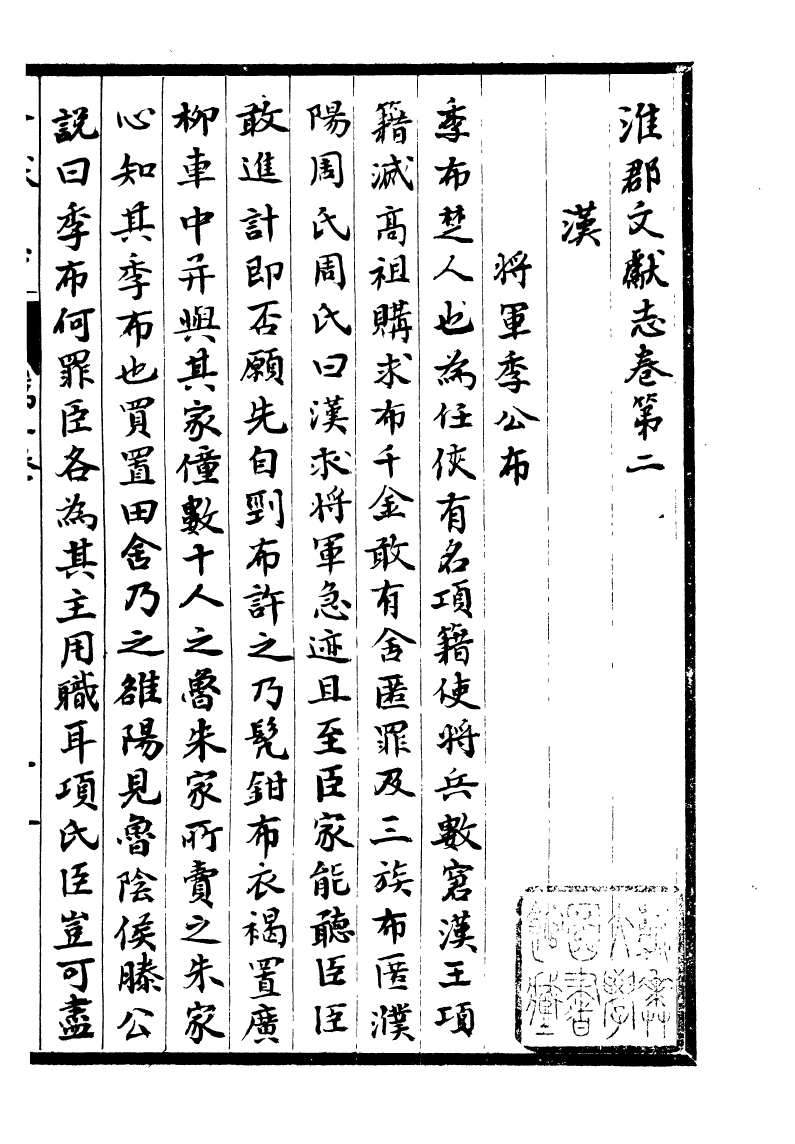 淮郡文獻志卷第二
漢
將軍季公布
季布楚人也為任俠有名項籍使將兵數窘漢王項
籍滅高祖購求布千金敢有舍匿罪及三族布匿濮
陽周氏周氏曰漢求將軍急迹且至臣家能聽臣臣
敢進計即否願先自剄布許之乃髠鉗布衣褐置廣
柳車中并與其家僮數十人之魯朱家所賣之朱家
心知其季布也買置田舍乃之雒陽見魯陰侯滕公
說曰季布何罪臣各為其主用職耳項氏臣豈可盡